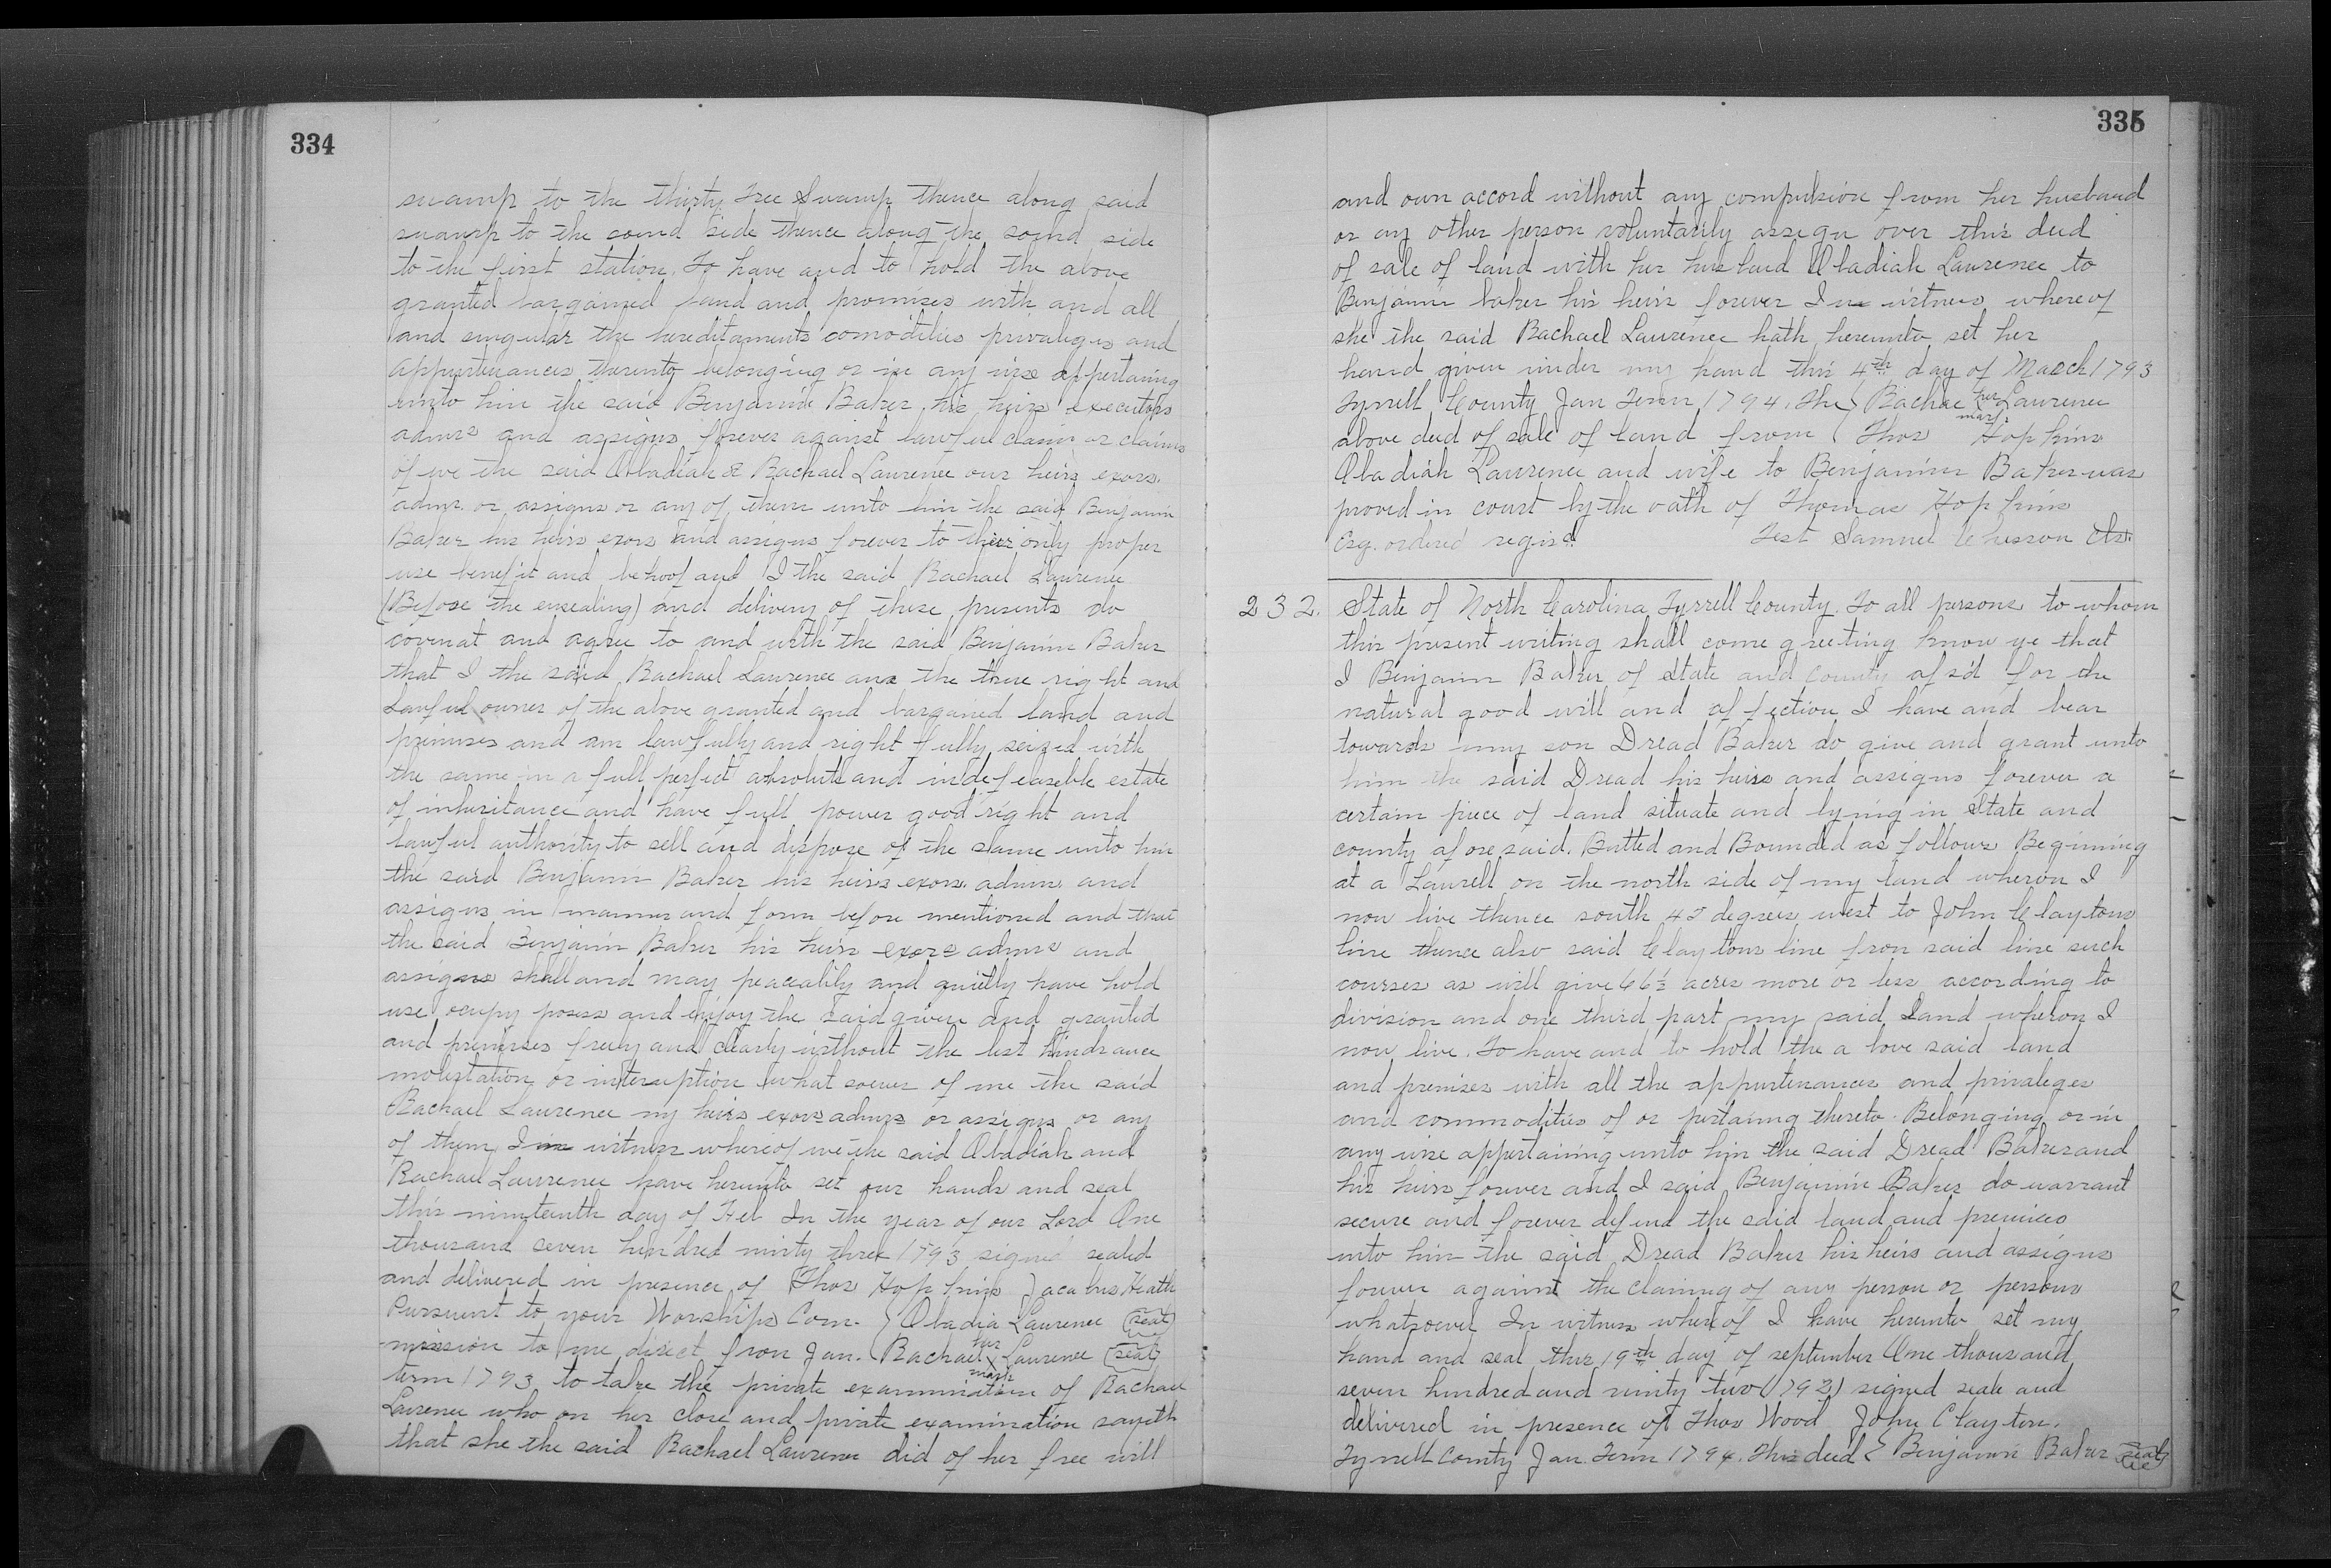 334
swamp to the thirty Tree Swamp thence along said
swamp to the sound side thence along the sound side
to the first station. To have and to hold the above
granted bargained land and promises with and all
and singular the hereditaments comodities privaliges and
appurtenances thereunto belonging or in any wise appertaining
unto him the said Benjamin Baker his heirs executors
admrs and assigns forever against lawful claim or claims
of we the said Obadiah & Rachael Laurence our heirs exors.
admr. or assigns or any of them unto him the said Benjamin
Baker his heirs exors and assigns forever to their only proper
use benefit and behoof and I the said Rachael Laurence
(Before the ensealing) and delivery of these presents do
covenat and agree to and with the said Benjamin Baker
that I the said Rachael Laurence am the true right and
Lawful owner of the above granted and bargained land and
primises and am lawfully and right fully seized with
the same in a full perfect absolute and indefeaseble estate
of inheritance and have full power good right and
lawful authority to sell and dispose of the same unto him
the said Benjamin Baker his heirs exors. admrs and
assigns in manner and form before mentioned and that
the said Benjamin Baker his heirs exors admrs and
assigns shall and may peaceably and quietly have hold
use ocupy posess and enjoy the said given and granted
and premises freely and clearly without the lest hindrance
molestation or interuption what soever of me the said
Rachael Laurence my heirs exors admrs or assigns or any
of them I in witness whereof we the said Obadiah and
Rachael Laurence have hereunto set our hands and seal
this ninteenth day of Feb In the year of our Lord One
thousand seven hundred ninty three 1793 signed sealed
and delivered in presence of (Thos Hopkins Jacabus Heath
Pursuent to your Worships Com- } Obadia Laurence (seal)
mission to me direct from Jan. Rachael her X mark Laurence (seal)
term 1793 to take the private examination of Rachael
Laurence who on her close and private examination sayeth
that she the said Rachael Laurence did of her free will
335
and own accord without any compulsion from her husband
or any other person voluntarily assign over this deed
of sale of land with her husband Obadiah Laurence to
Benjamin baker his heirs forever I in witness whereof
she the said Rachael Laurence hath hereunto set her
hand given under my hand this 4th day of March 1793
Tyrrell County Jan Term 1794. The } Rachae her mark Laurence
above deed of sale of land from { Thos Hopkins
Obadiah Laurence and wife to Benjamin Baker was
proved in court by the oath of Thomas Hopkins
Esq. ordered regisd. Test Samuel Chesson Clk.
232. State of North Carolina Tyrrell County. To all persons to whom
this present writing shall come greeting know ye that
I Benjamin Baker of State and County afsd for the
natural good will and affection I have and bear
towards my son Dread Baker do give and grant unto
him the said Dread his heirs and assigns forever a
certain piece of land situate and lying in State and
county aforesaid. Butted and Bounded as follows Beginning
at a Laurell on the north side of my land wheron I
now live thence south 45 degrees west to John Claytons
line thence also said Claytons line from said line such
courses as will give 66½ acres more or less according to
division and one third part my said Land wheron I
now live. To have and to hold the a bove said land
and premises with all the appurtenances and privaleges
and commodities of or pertaing thereto. Belonging or in
any wise appertaining unto him the said Dread Baker and
his heirs forever and I said Benjamin Baker do warrant
secure and forever defend the said land and premises
unto him the said Dread Baker his heirs and assigns
forever against the claming of any person or persons
whatsoever In witness whereof I have hereunto set my
hand and seal this 19th day of september One thousand
seven hundred and ninty two (1792) signed seale and
delivered in presence of Thos Wood John Clayton.
Tyrrell County Jan. Term 1794. This deed { Benjamin Baker (seal)